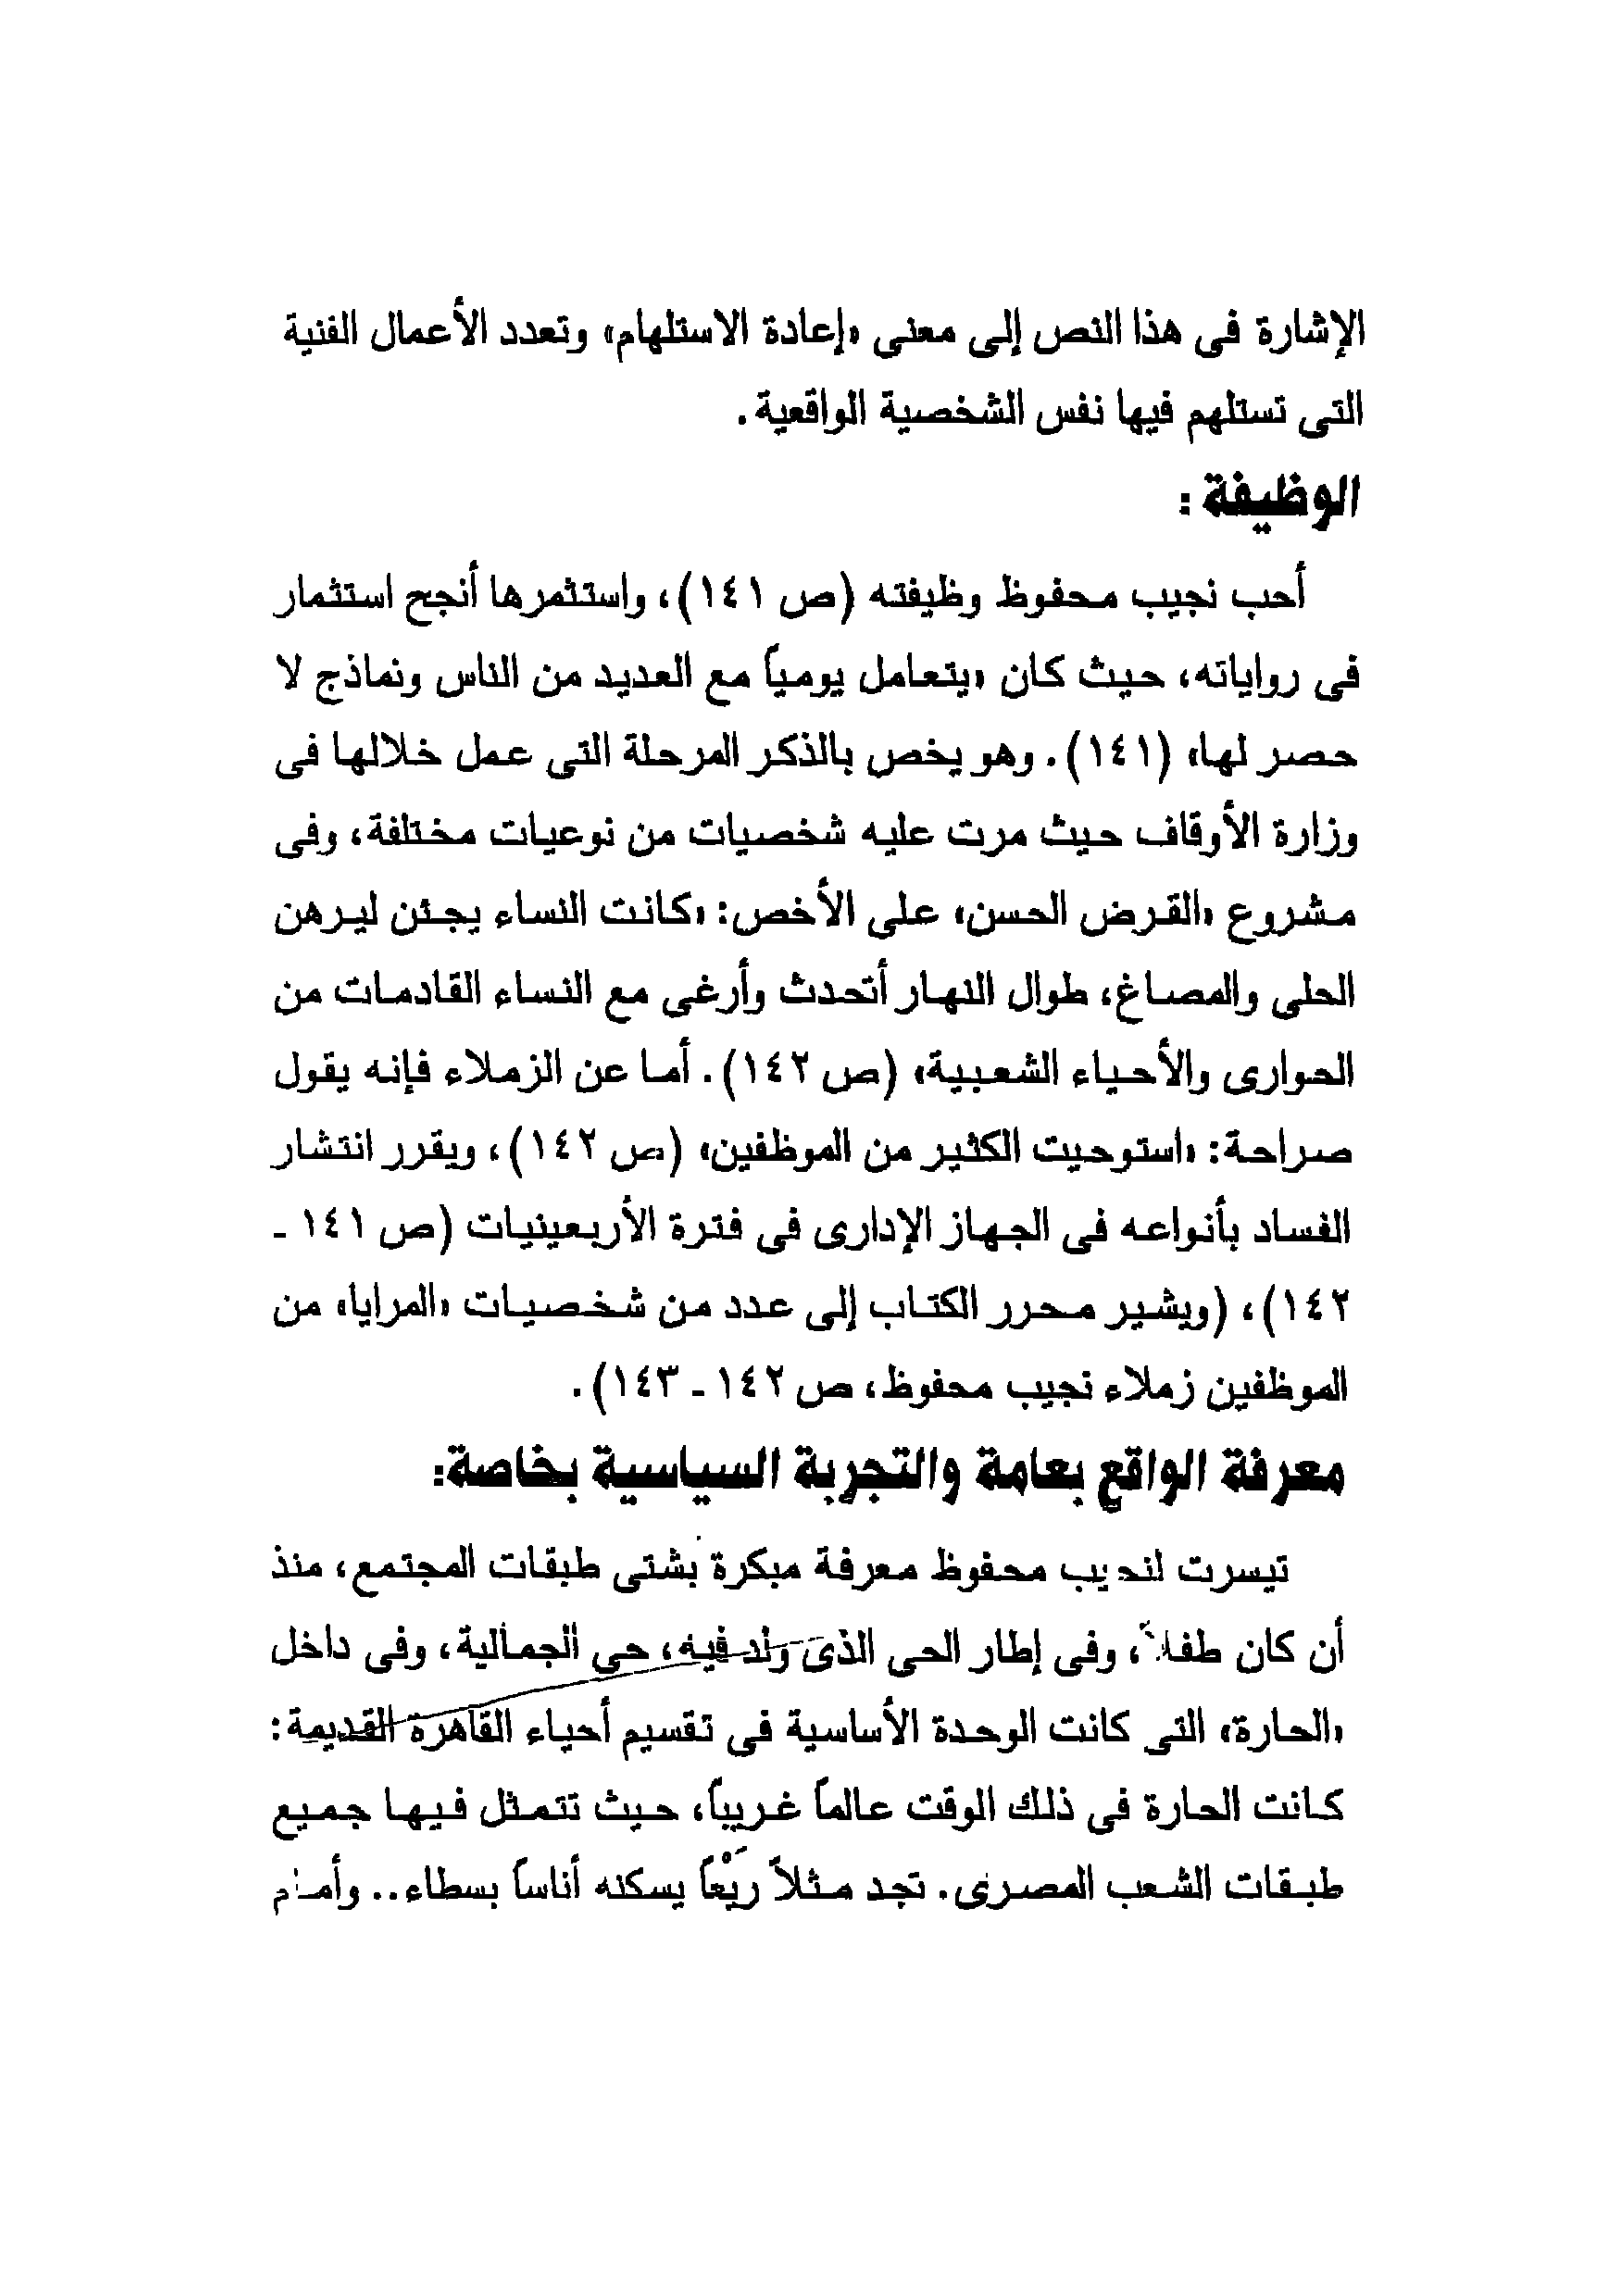 الإشارة فى هذا النص إلى معنى «إعادة الاستلهام» وتعدد الأعمال الفنية
التى تستلهم فيها نفس الشخصية الواقعية.
الوظيفة :
أحب نجيب محفوظ وظيفته (ص ١٤١)، واستثمرها أنجح استثمار
فى رواياته، حيث كان «يتعامل يومياً مع العديد من الناس ونماذج لا
حصر لها» (١٤١). وهو يخص بالذكر المرحلة التى عمل خلالها فى
وزارة الأوقاف حيث مرت عليه شخصيات من نوعيات مختلفة، وفى
مشروع «القرض الحسن» على الأخص: «كانت النساء يجئن ليرهن
الحلى والمصاغ، طوال النهار أتحدث وأرغى مع النساء القادمات من
الحوارى والأحياء الشعبية» (ص ١٤٢). أما عن الزملاء فإنه يقول
صراحة: «استوحيت الكثير من الموظفين» (ص ١٤٢)، ويقرر انتشار
الفساد بأنواعه فى الجهاز الإدارى فى فترة الأربعينيات (ص ١٤١ -
١٤٢)، (ويشير محرر الكتاب إلى عدد من شخصيات «المرايا» من
الموظفين زملاء نجيب محفوظ، ص ١٤٢ - ١٤٣).
معرفة الواقع بعامة والتجربة السياسية بخاصة:
تيسرت لنجيب محفوظ معرفة مبكرة بشتى طبقات المجتمع، منذ
أن كان طفلاً، وفى إطار الحى الذى ولد فيه، حي الجمالية، وفى داخل
«الحارة» التى كانت الوحدة الأساسية فى تقسيم أحياء القاهرة القديمة:
كانت الحارة فى ذلك الوقت عالماً غريباً، حيث تتمثل فيها جميع
طبقات الشعب المصرى. تجد مثلاً رَبْعاً يسكنه أناساً بسطاء.. وأمام